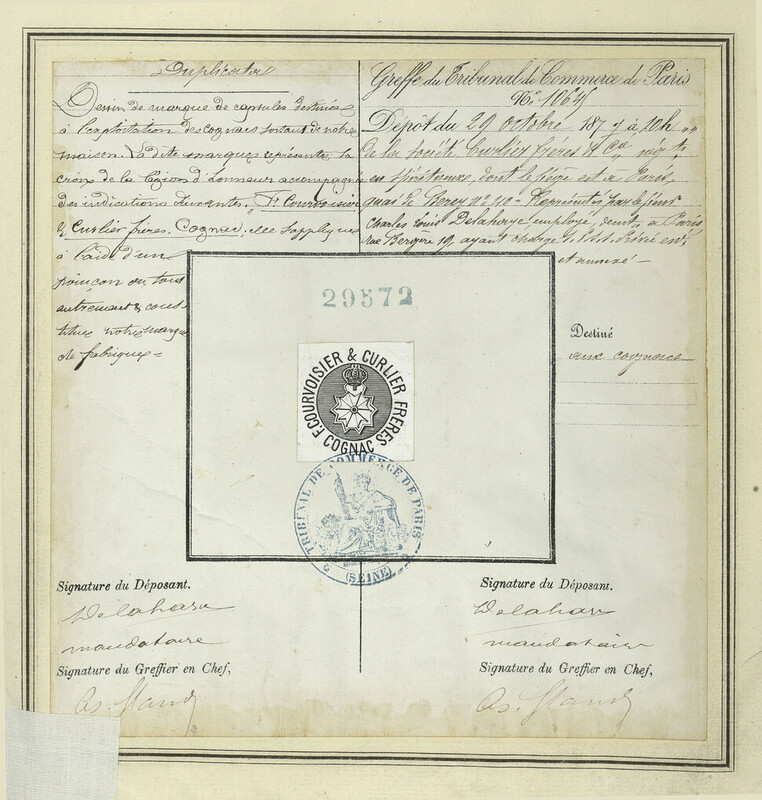 Duplicata
Dessin de marque de capsules destinées
à l'exploitation des cognacs sortant de notre
maison. La dite marque représente la
croix de la Légion d'honneur accompagnée
des indications suivantes. F. Courvoisier
& Curlier frères. Cognac; elle s'applique
à l'aide d'un
poinçon ou tout
autrement & cons
titue notre marque
de fabrique =
Greffe du Tribunal de Commerce de Paris
No. 1064
Dépôt du 29 octobre 187 à 10h
de la société Curlier frères & Cie négts
en spiritueux, dont le siège est à Paris,
quai de Bercy no 40 = Représentés par le sieur
Charles Louis Delahaye, employé, demt à Paris
rue Bergère 19, ayant charge
et annexé —
Destiné
aux cognacs
29572
F. COURVOISIER & CURLIER FRÈRES
COGNAC
TRIBUNAL DE COMMERCE DE PARIS
(SEINE)
Signature du Déposant.
mandataire
Signature du Greffier en Chef,
Signature du Déposant.
mandataire
Signature du Greffier en Chef,